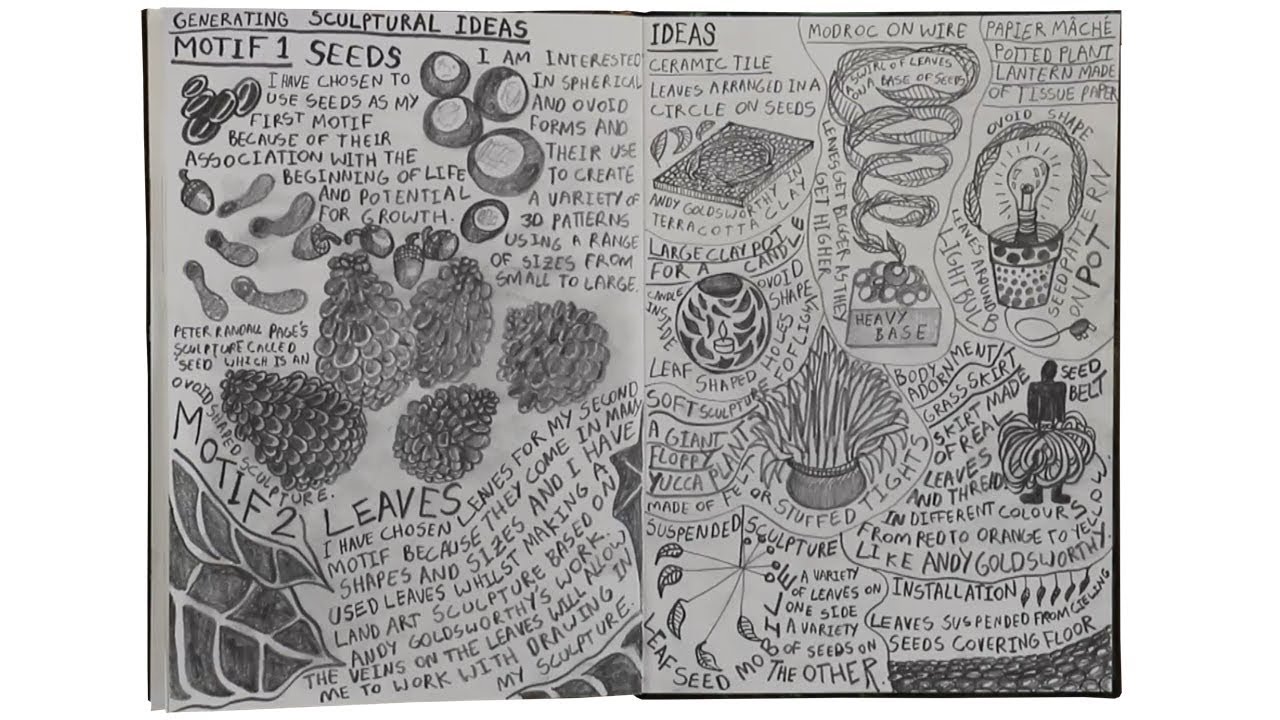 GENERATING SCULPTURAL IDEAS
MOTIF 1 SEEDS
I HAVE CHOSEN TO
USE SEEDS AS MY
FIRST MOTIF
BECAUSE OF THEIR
ASSOCIATION WITH THE
BEGINNING OF LIFE
AND POTENTIAL
FOR GROWTH.
I AM INTERESTED
IN SPHERICAL
AND OVOID
FORMS AND
THEIR USE
TO CREATE
A VARIETY OF
3D PATTERNS
USING A RANGE
OF SIZES FROM
SMALL TO LARGE.
PETER RANDALL PAGE'S
SCULPTURE CALLED
'SEED' WHICH IS AN
OVOID SHAPED SCULPTURE.
MOTIF 2 LEAVES
I HAVE CHOSEN LEAVES FOR MY SECOND
MOTIF BECAUSE THEY COME IN MANY
SHAPES AND SIZES AND I HAVE
USED LEAVES WHILST MAKING A
LAND ART SCULPTURE BASED ON
ANDY GOLDSWORTHY'S WORK.
THE VEINS ON THE LEAVES WILL ALLOW
ME TO WORK WITH DRAWING IN
MY SCULPTURE.
IDEAS
CERAMIC TILE
LEAVES ARRANGED IN A
CIRCLE ON SEEDS
ANDY GOLDSWORTHY IN
TERRACOTTA CLAY
MODROC ON WIRE
A SWIRL OF LEAVES
ON A BASE OF SEEDS
LEAVES GET BIGGER AS THEY
GET HIGHER
HEAVY
BASE
PAPIER MÂCHÉ
POTTED PLANT
LANTERN MADE
OF TISSUE PAPER
OVOID SHAPE
LEAVES AROUND
LIGHT BULB
SEED PATTERN
ON POT
LARGE CLAY POT
FOR A CANDLE
CANDLE
INSIDE
OVOID
SHAPE
LEAF SHAPED HOLES
FOR LIGHT
SOFT SCULPTURE
A GIANT
FLOPPY
YUCCA PLANT
MADE OF FELT OR STUFFED TIGHTS
BODY
ADORNMENT
GRASS SKIRT
SEED
BELT
SKIRT MADE
OF REAL
LEAVES
AND THREAD
IN DIFFERENT COLOURS
FROM RED TO ORANGE TO YELLOW.
LIKE ANDY GOLDSWORTHY.
SUSPENDED SCULPTURE
LEAF SEED MOBILE
A VARIETY
OF LEAVES ON
ONE SIDE
A VARIETY
OF SEEDS ON
THE OTHER.
INSTALLATION
LEAVES SUSPENDED FROM CIELING
SEEDS COVERING FLOOR